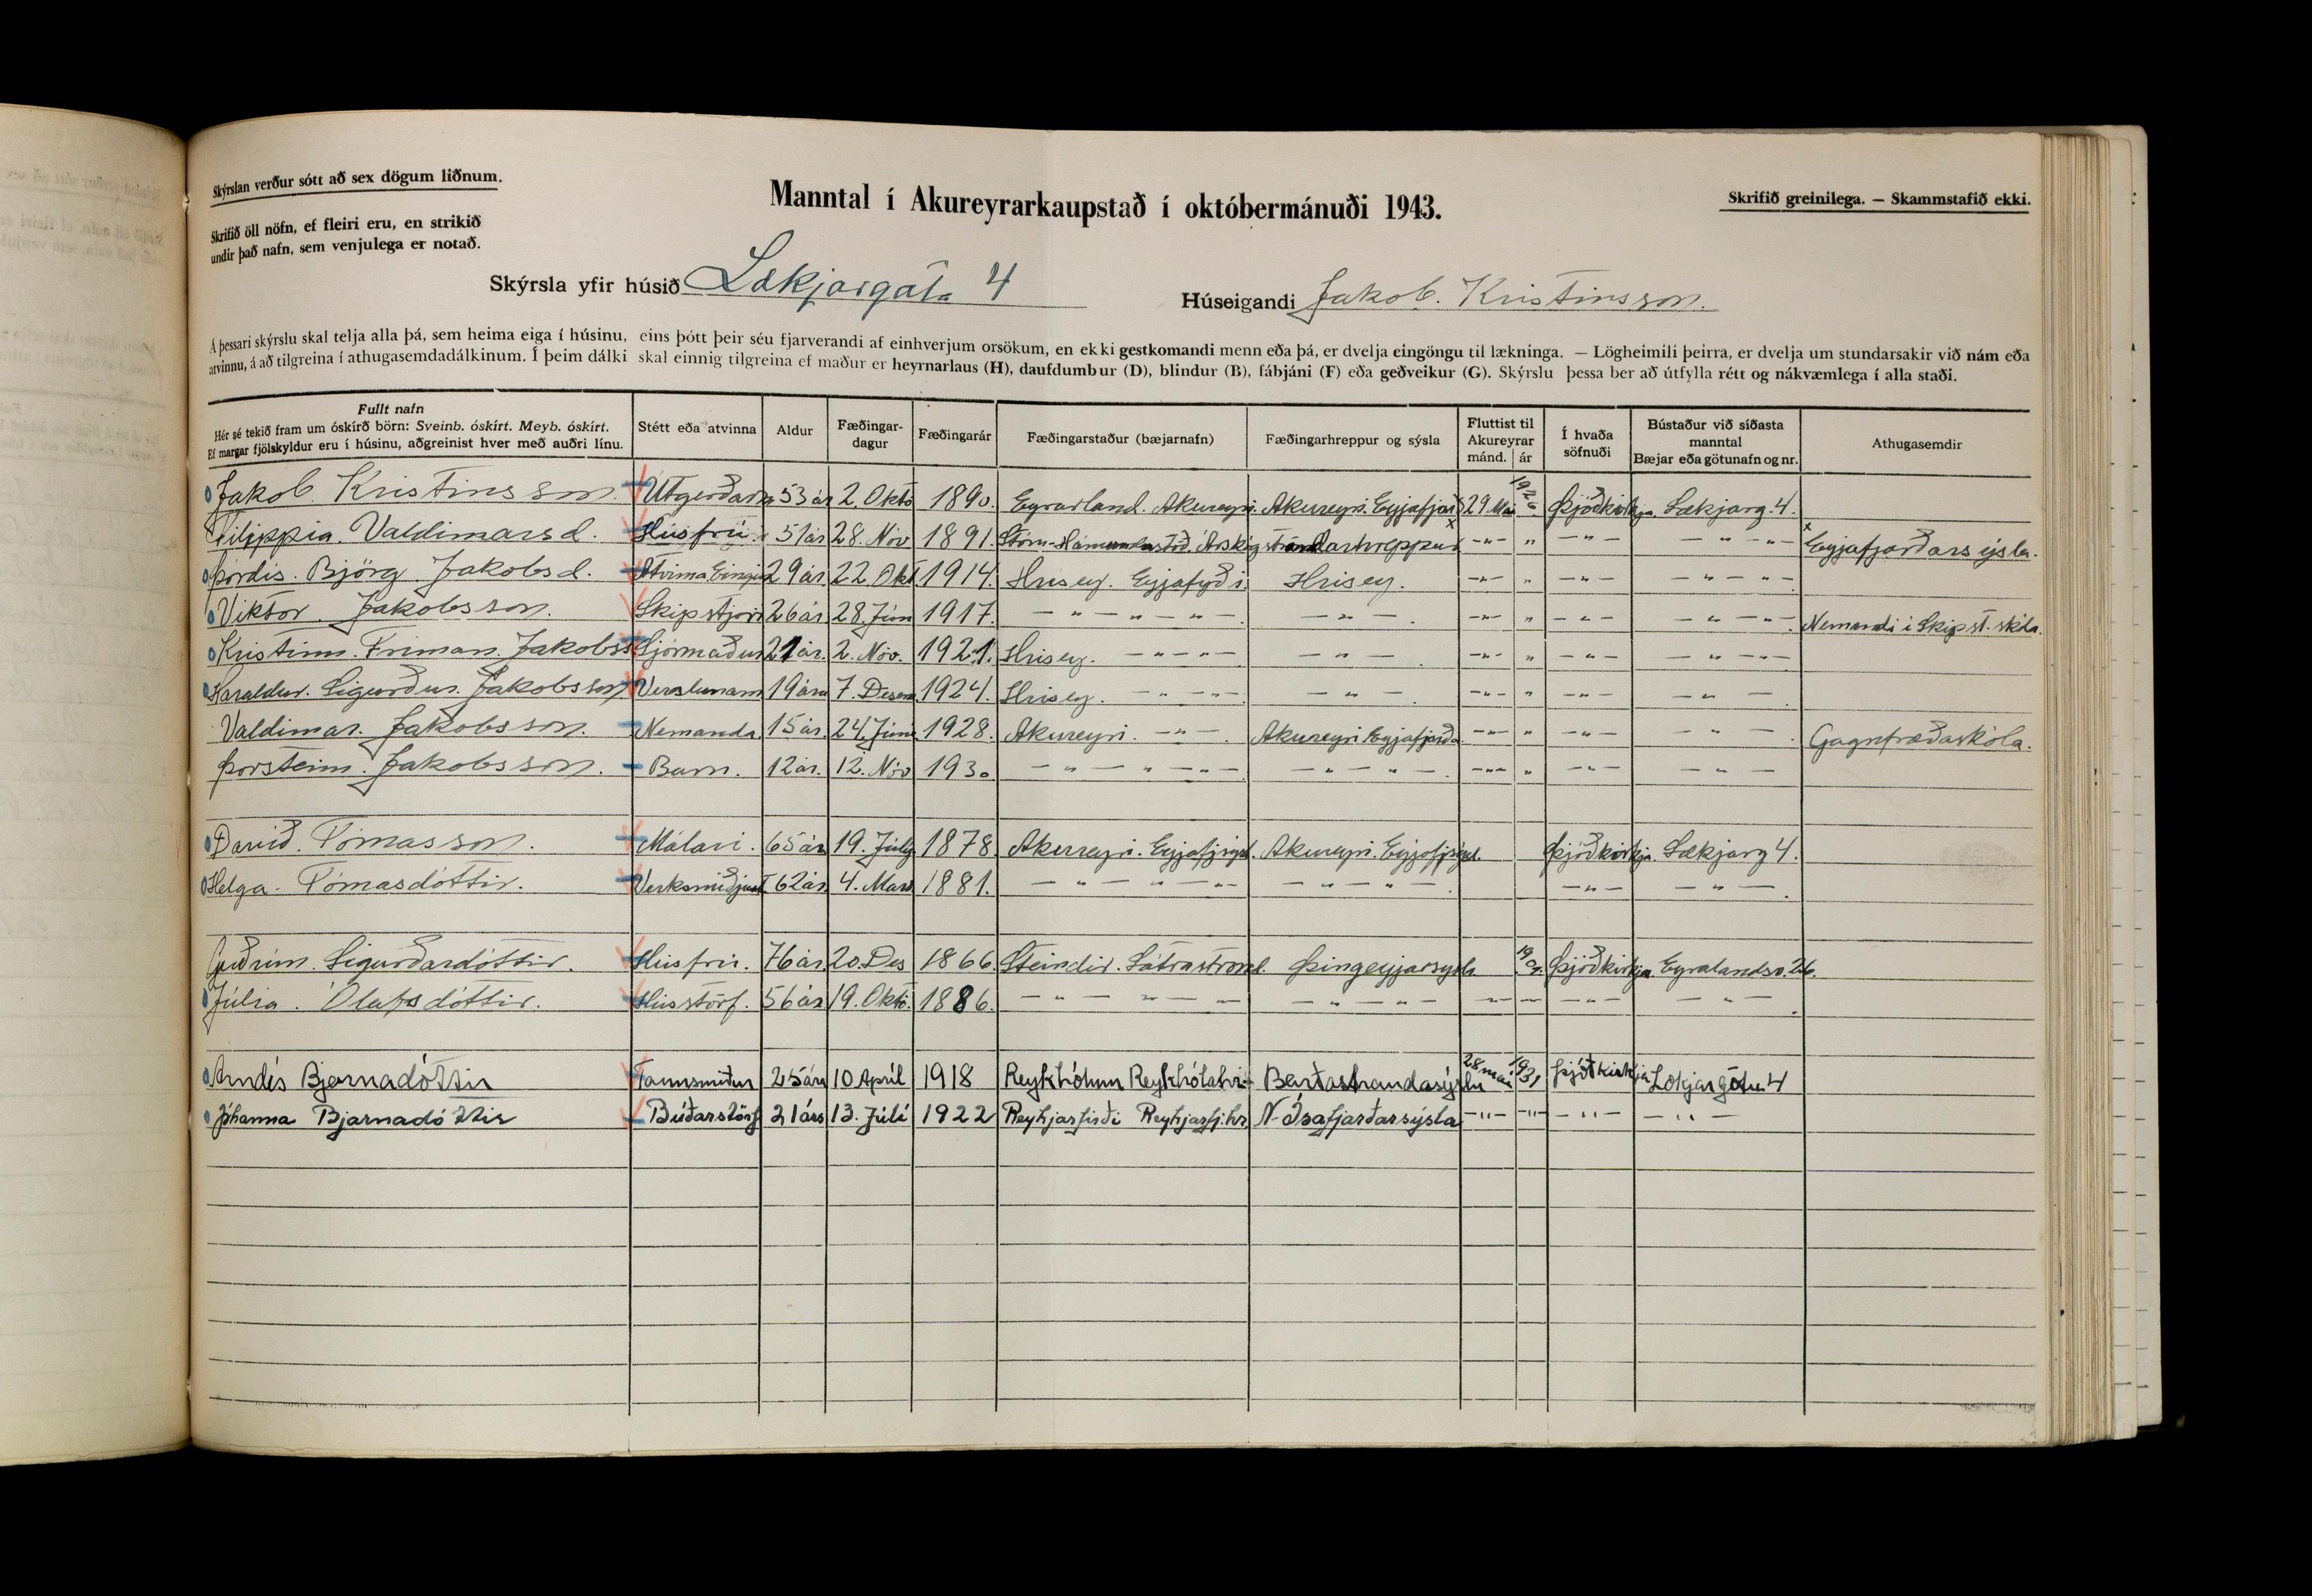 Skýrslan verður sótt að sex dögum liðnum.
Manntal í Akureyrarkaupstað í októbermánuði 1943.
Skrifið greinilega. — Skammstafið ekki.
Skrifið öll nöfn, ef fleiri eru, en strikið
undir það nafn, sem venjulega er notað.
Skýrsla yfir húsið Lækjargata 4
Húseigandi Jakob. Kristinsson.
Á þessari skýrslu skal telja alla þá, sem heima eiga í húsinu, eins þótt þeir séu fjarverandi af einhverjum orsökum, en ekki gestkomandi menn eða þá, er dvelja eingöngu til lækninga. — Lögheimili þeirra, er dvelja um stundarsakir við nám eða
atvinnu, á að tilgreina í athugasemdadálkinum. Í þeim dálki skal einnig tilgreina ef maður er heyrnarlaus (H), daufdumbur (D), blindur (B), fábjáni (F) eða geðveikur (G). Skýrslu þessa ber að útfylla rétt og nákvæmlega í alla staði.
Fullt nafn
Hér sé tekið fram um óskírð börn: Sveinb. óskírt. Meyb. óskírt.
Ef margar fjölskyldur eru í húsinu, aðgreinist hver með auðri línu.
Stétt eða atvinna
Aldur
Fæðingar-
dagur
Fæðingarár
Fæðingarstaður (bæjarnafn)
Fæðingarhreppur og sýsla
Fluttist til
Akureyrar
mánd. | ár
Í hvaða
söfnuði
Bústaður við síðasta
manntal
Bæjar eða götunafn og nr.
Athugasemdir
Jakob. Kristinsson. Útgerðarm 53 ár 2. Októ 1890. Eyrarland. Akureyri. Akureyri. Eyjafjar 29 Mai 1926 Þjóðkirkja. Lækjarg. 4.
Filippia. Valdimarsd. Húsfrú. 51 ár 28. Nóv 1891. Stóru-Hámundastöð. Árskógstrandarhreppur x —"— " —"— — " — "— x Eyjafjarðarsýsla.
Þórdís. Björg. Jakobsd. 29 ár. 22. Okt 1914. Hrísey. Hrísey. —"— " —"— — " — " —
Viktor. Jakobsson. Skipstjóri 26 ár 28. Júní 1917. — " — " — " —. — " —. —"— " —"— — " — "—. Nemandi í Skipst. skóla
Kristinn. Frímann. Jakobss Sjómaður 21 ár. 2. Nóv. 1921. Hrísey. — " — " — — " —. —"— " —"— — " — "—
Haraldur. Sigurður. Jakobsson Verslunarm 19 ára 7. Desem 1924. Hrísey. — " — "— — " —. —"— " —"— — " —.
Valdimar. Jakobsson. Nemandi. 15 ár. 24. Júní 1928. Akureyri. —"—. Akureyri Eyjafjarða. —"— " —"— — " —. Gagnfræðaskóla.
Þorsteinn. Jakobsson. Barn. 12 ár. 12. Nóv 1930 — " — " — "— — " — " —. —"— " —"— — " —
Davíð. Tómasson. Málari. 65 ár 19. Júlý 1878. Akureyri. Akureyri. Þjóðkirkja. Lækjarg 4.
Helga. Tómasdóttir. 62 ár. 4. Mars. 1881. — " — " — "— — " — " —. —"— — " —.
Guðrún. Sigurðardóttir. Húsfrú. 76 ár. 20. Des 1866. Steindir. Látraströnd. Þingeyjarsýsla. Þjóðkirkja Eyralandsv. 26.
Júlía. Ólafsdóttir. Hússtörf. 56 ár 19. Októ. 1886. — " — " — " — — " — " — —"— —"— —"— — " —.
Arndís Bjarnadóttir Tannsmíður 25 ára 10 Apríl 1918 Reykhólum Reykhólahr. Barðastrandasýslu 28 mai 1931 Þjóðkirkja Lækjargötu 4
Jóhanna Bjarnadóttir Búðarstörf 21 árs 13. Júlí 1922 Reykjarfirði Reykjarfj.hr. N-Ísafjarðarsýsla —"— —"— — " — — " —